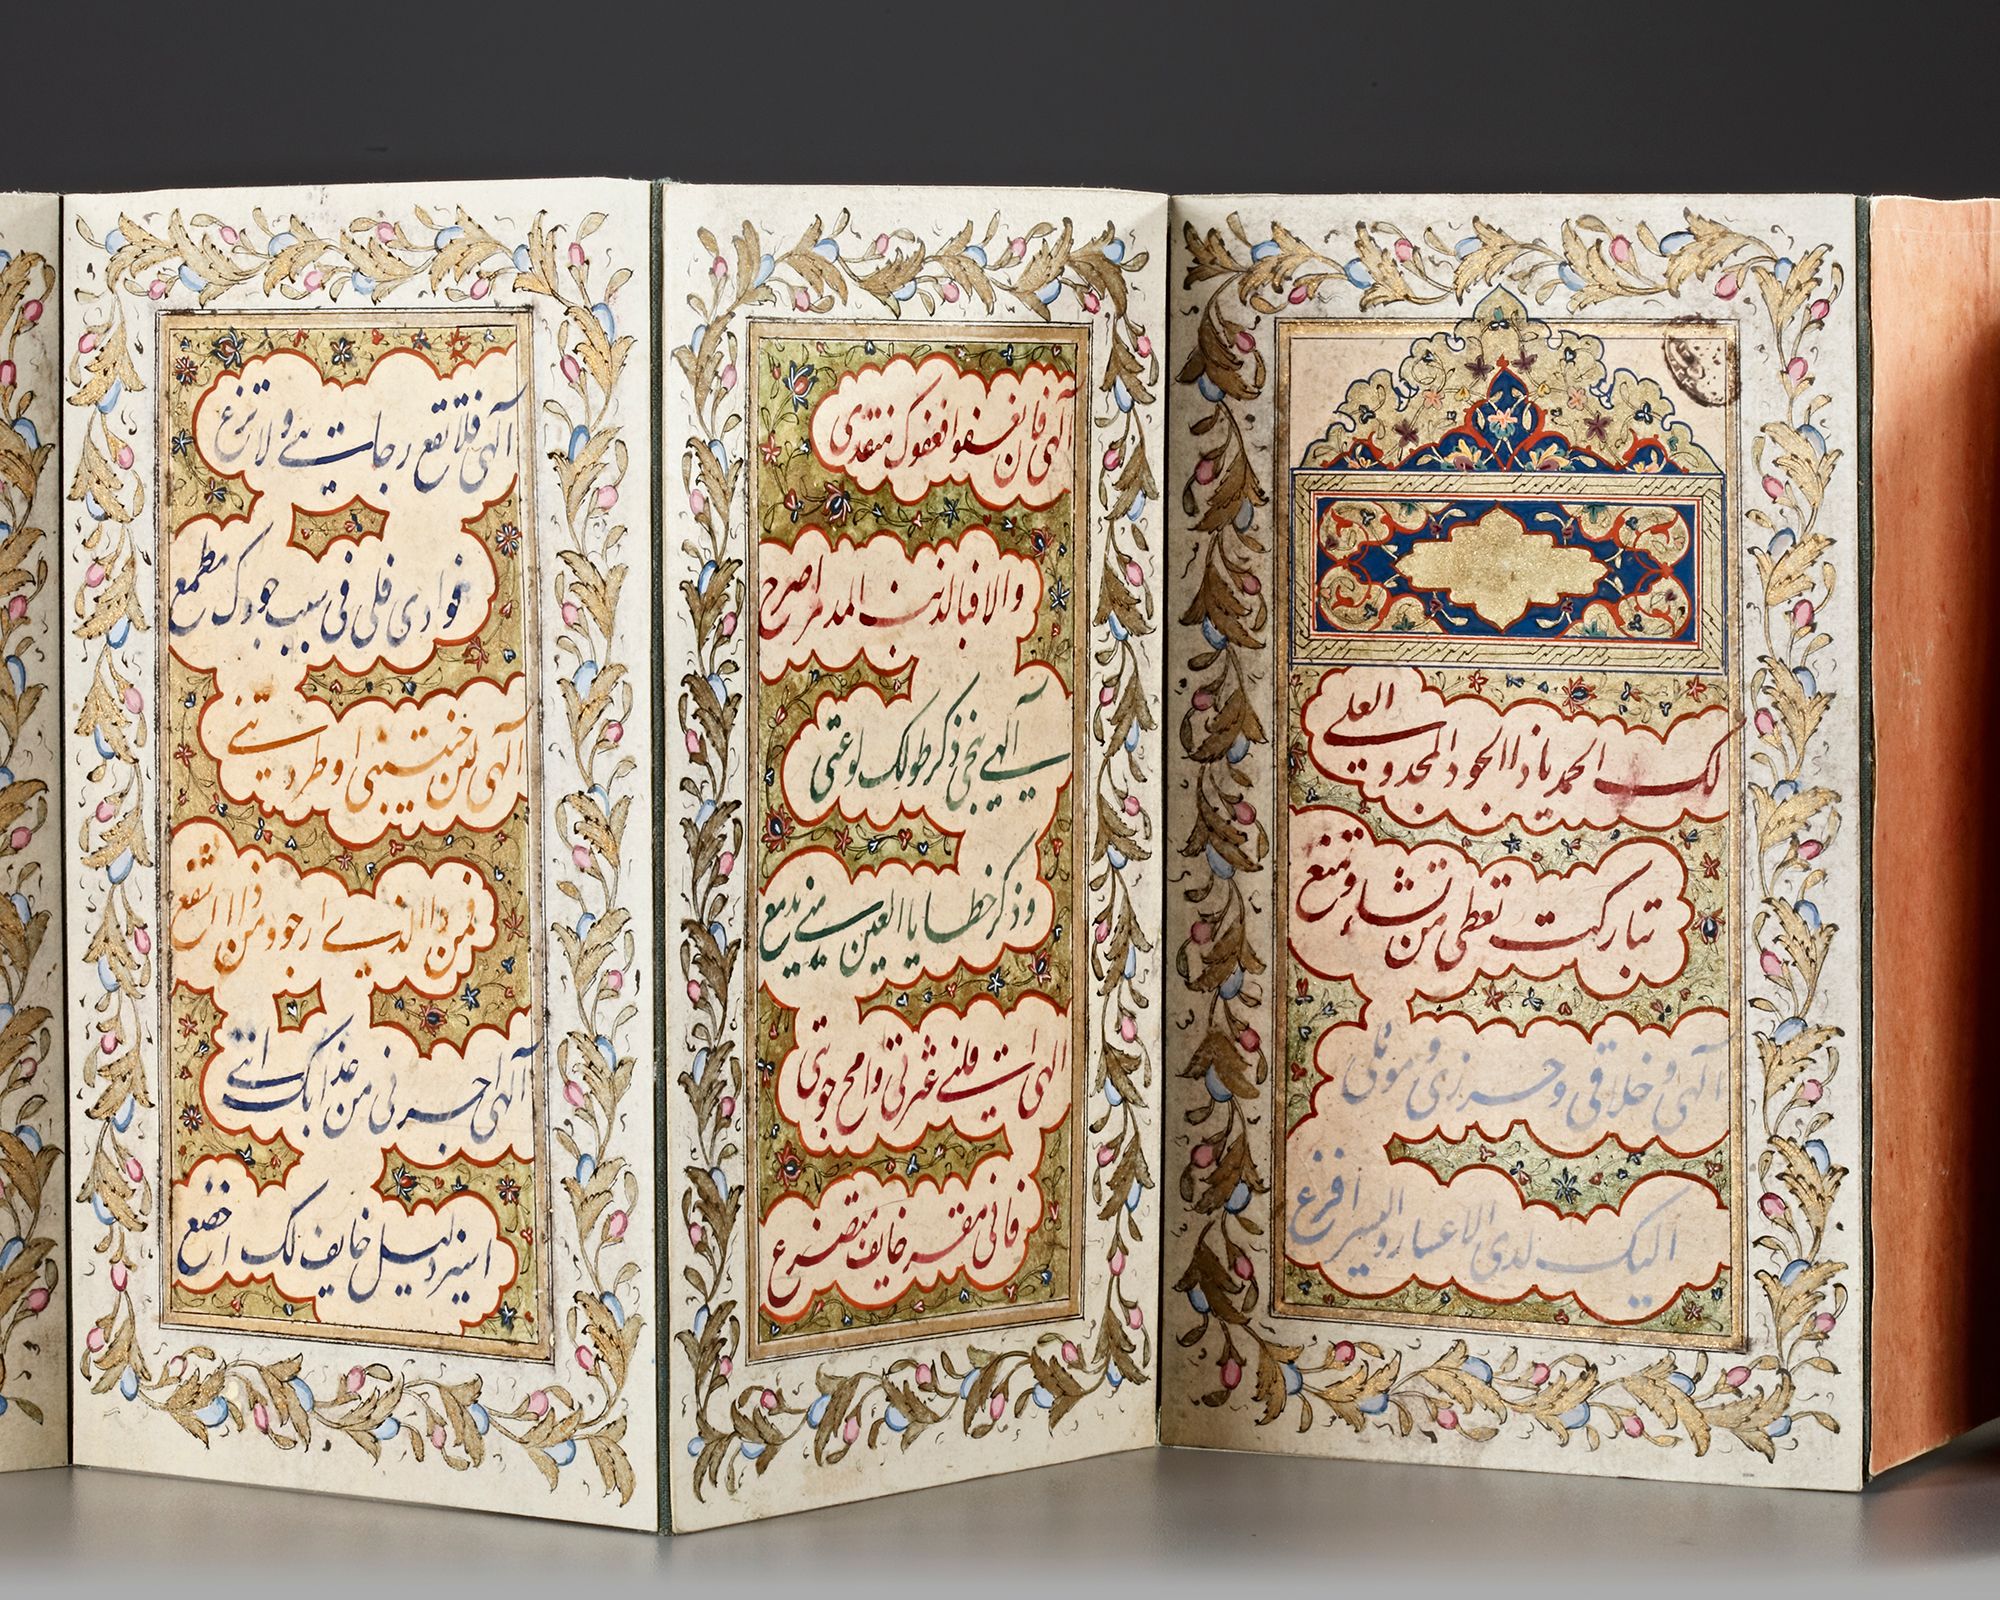 لك الحمد ياذا الجود المجد والعلي
تباركت تعطي من تشاء وتمنع
آلهي وخلاقي وحرزي وموئلي
اليك لدي الاعسار واليسر افزع
آلهي فان تعفو فعفوك منقذي
والا فبالذنب المدمر اصرع
آلهي ينجي ذكر طولك لوعتي
وذكر خطايا العين مني يدمع
الهي اقلني عثرتي وامح حوبتي
فاني مقر خايف متضرع
آلهي فلا تقطع رجائي ولا تزغ
فوادي فلي في سيب جودك مطمع
آلهي لئن خيبتني او طردتني
فمن ذا الذي ارجو ومن ذا اشفع
آلهي اجرني من عذابك انني
اسير ذليل خايف لك اخضع